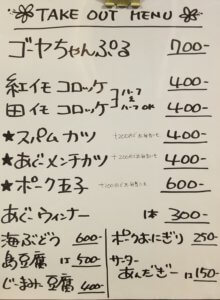 TAKE OUT MENU
ゴヤちゃんぷる 700-
紅イモコロッケ 400-
田イモコロッケ 400-
ハーフ&ハーフOK
★スパムカツ 400-
★あぐメンチカツ 400-
★ポーク玉子 600-
あぐーウィンナー 1本 300-
海ぶどう 600-
島豆腐 1コ 500-
じーまみ豆腐 400-
ポークおにぎり 250-
サーター
あんだぎー 1コ 150-